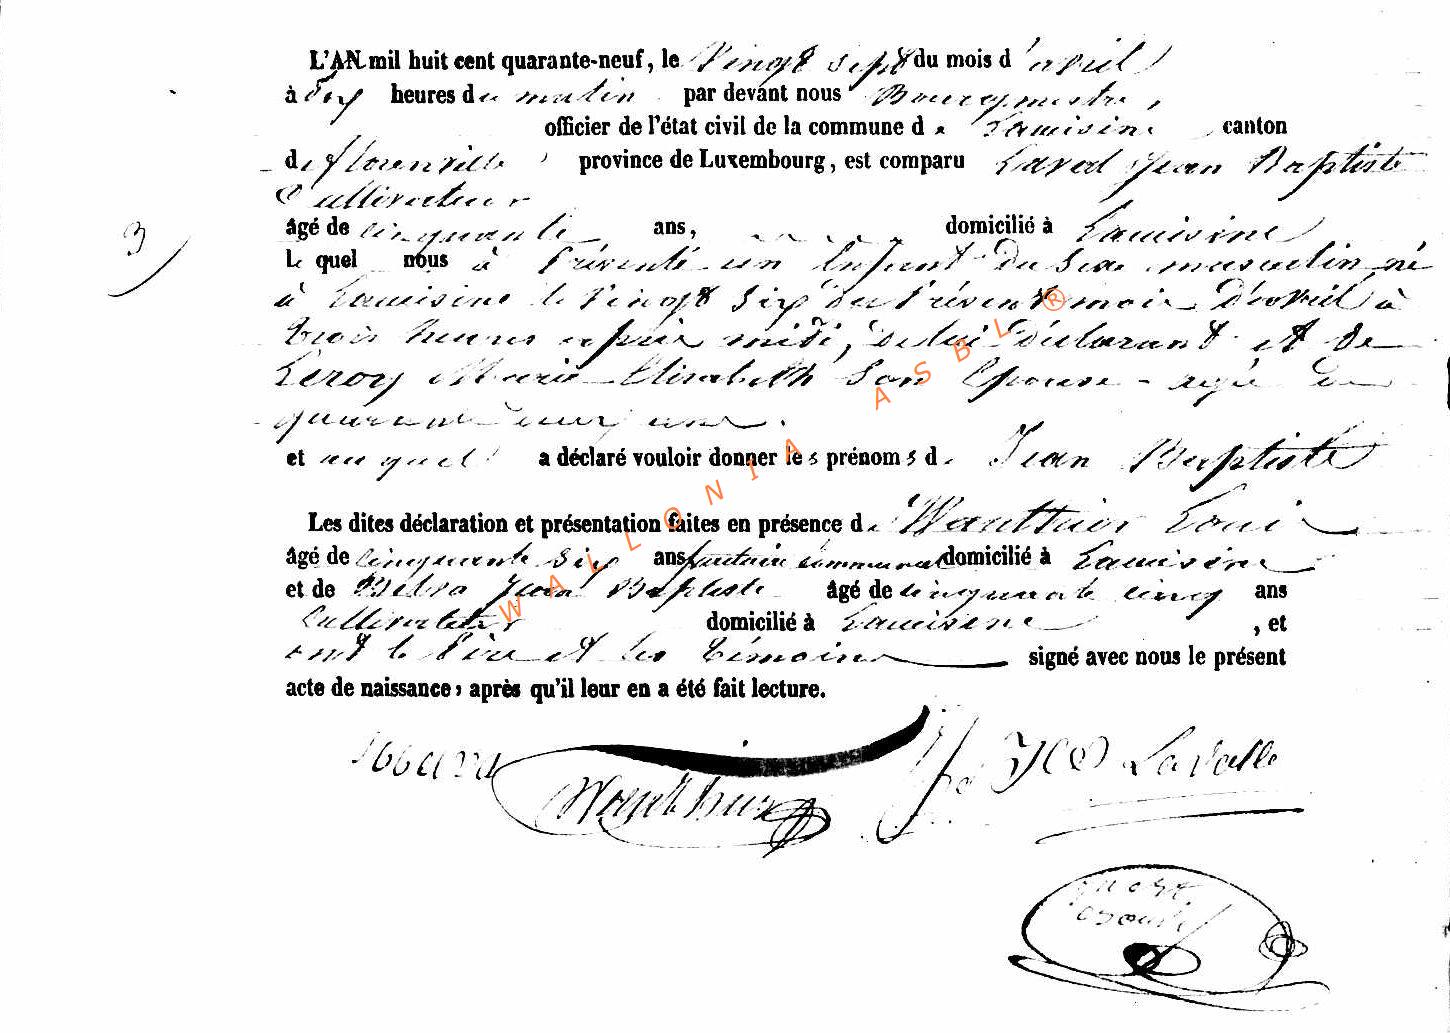 L'AN mil huit cent quarante-neuf, le Vingt sept du mois d'avril
à dix heures du matin par devant nous Bourgmestre,
officier de l'état civil de la commune de Lacuisine canton
de florenville, province de Luxembourg, est comparu Laval Jean Baptiste
Cultivateur
âgé de cinquante ans, domicilié à Lacuisine
3
Le quel nous à Présenté un Enfant du Sexe masculin né
à Lacuisine le Vingt Six du Présent mois d'avril à
trois heures après midi, de lui déclarant et de
Leroy Marie Elisabeth Son Epouse agée de
quarante deux ans.
et auquel a déclaré vouloir donner les prénoms de Jean Baptiste
Les dites déclaration et présentation faites en présence de Wauthier Loui
âgé de cinquante six ans communal domicilié à Lacuisine
et de Jean Baptiste âgé de cinquante cinq ans
Cultivateur domicilié à Lacuisine, et
ont le Père et les témoins signé avec nous le présent
acte de naissance, après qu'il leur en a été fait lecture.
LaValle
WALLONIA ASBL ®